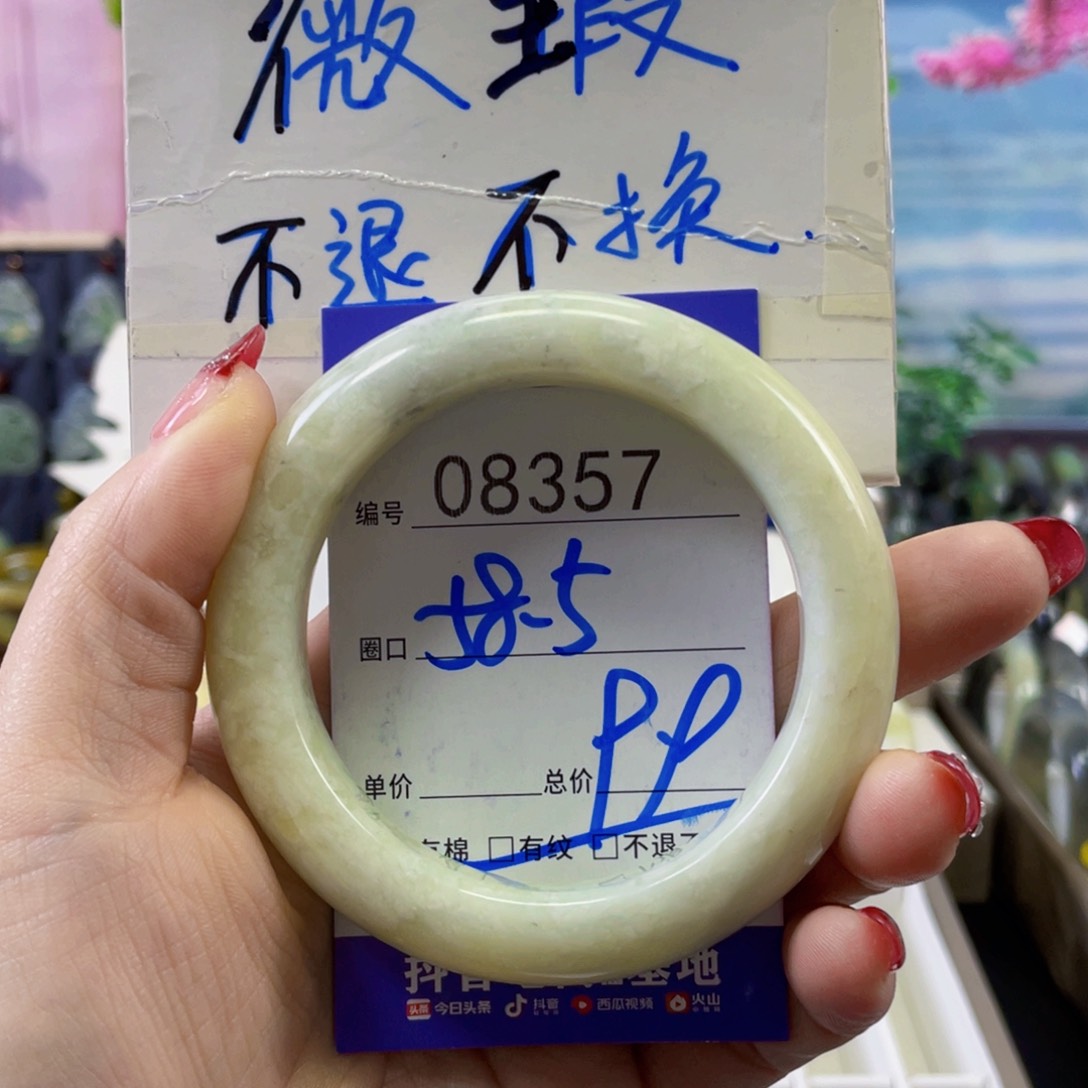 微瑕
不退不换.
编号 08357
圈口 58.5
单价 总价 99
有棉 □有纹 □不退不
抖音 基地
头条 今日头条 抖音 西瓜视频 火山